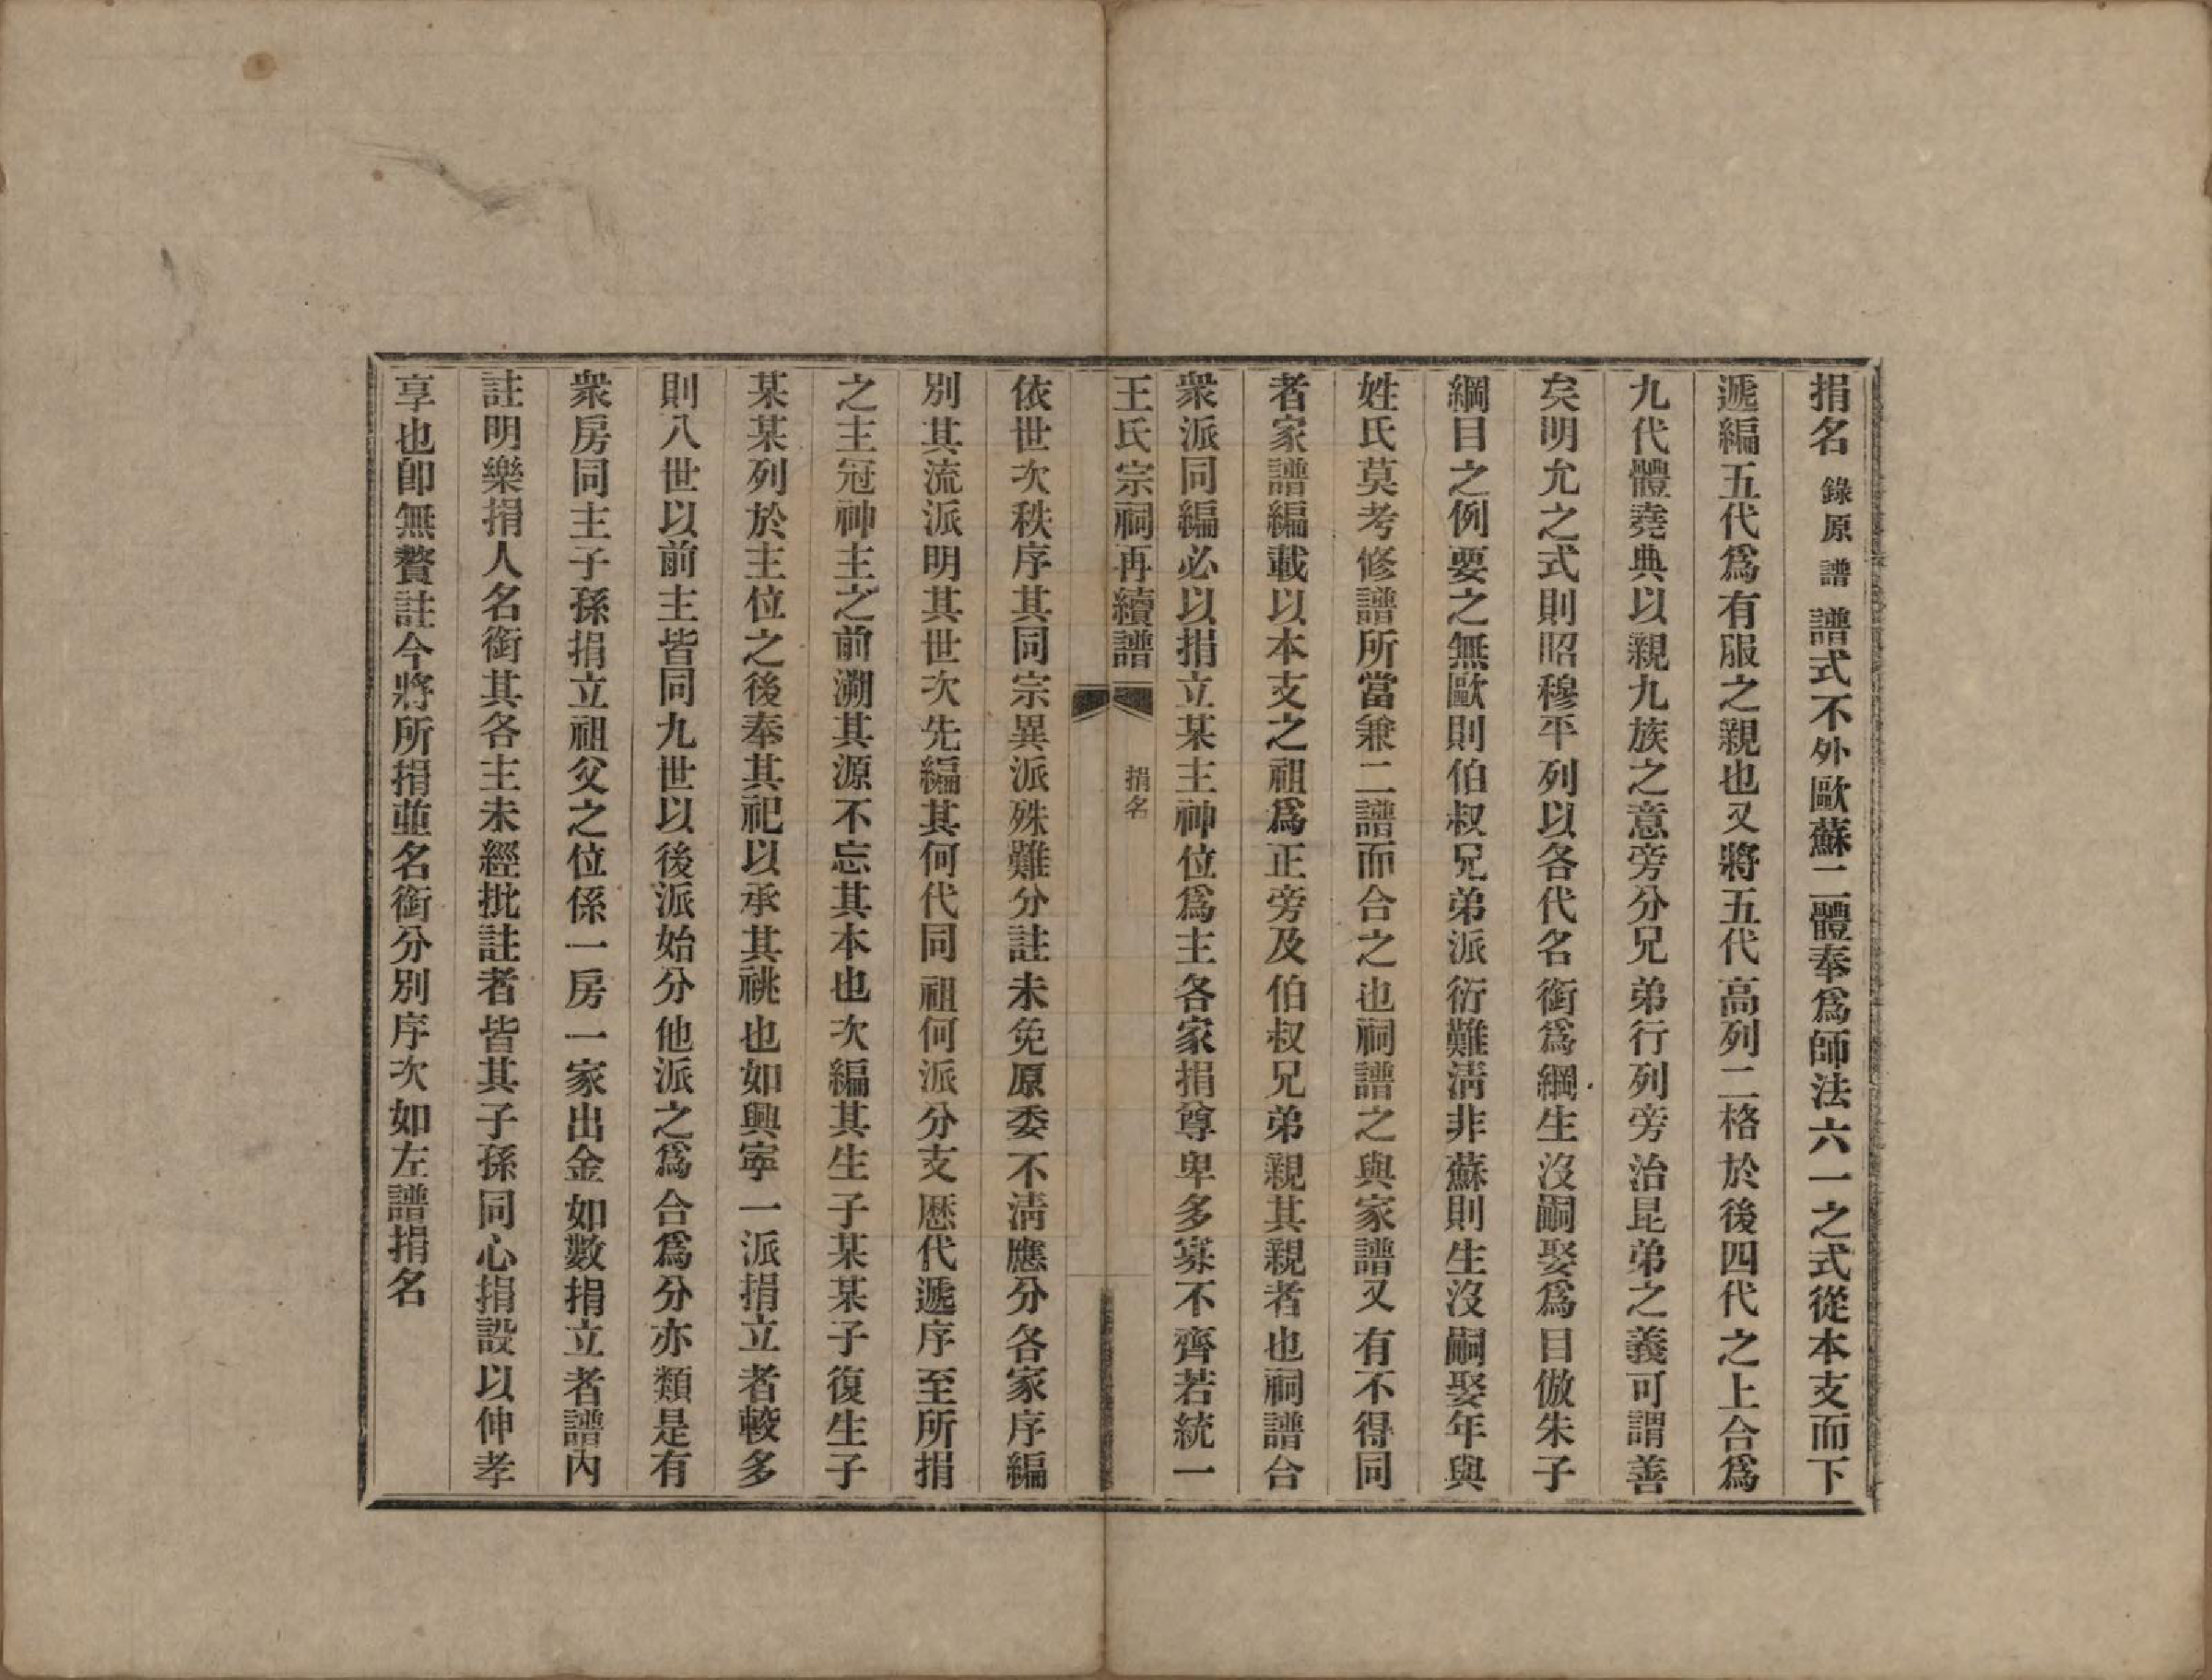 捐名 錄原譜 譜式不外歐蘇二體奉爲師法六一之式從本支而下
遞編五代爲有服之親也又將五代高列二格於後四代之上合爲
九代體堯典以親九族之意旁分兄弟行列旁治昆弟之義可謂善
矣明允之式則昭穆平列以各代名銜爲綱生沒嗣娶爲目倣朱子
綱目之例要之無歐則伯叔兄弟派衍難清非蘇則生沒嗣娶年與
姓氏莫考修譜所當兼二譜而合之也祠譜之與家譜又有不得同
者家譜編載以本支之祖爲正旁及伯叔兄弟親其親者也祠譜合
衆派同編必以捐立某主神位爲主各家捐尊卑多寡不齊若統一
王氏宗祠再續譜 捐名
依世次秩序其同宗異派殊難分註未免原委不清應分各家序編
別其流派明其世次先編其何代同祖何派分支歷代遞序至所捐
之主冠神主之前溯其源不忘其本也次編其生子某某子復生子
某某列於主位之後奉其祀以承其祧也如興寧一派捐立者較多
則八世以前主皆同九世以後派始分他派之爲合爲分亦類是有
衆房同主子孫捐立祖父之位係一房一家出金如數捐立者譜內
註明樂捐人名銜其各主未經批註者皆其子孫同心捐設以伸孝
享也卽無贅註今將所捐並名銜分別序次如左譜捐名